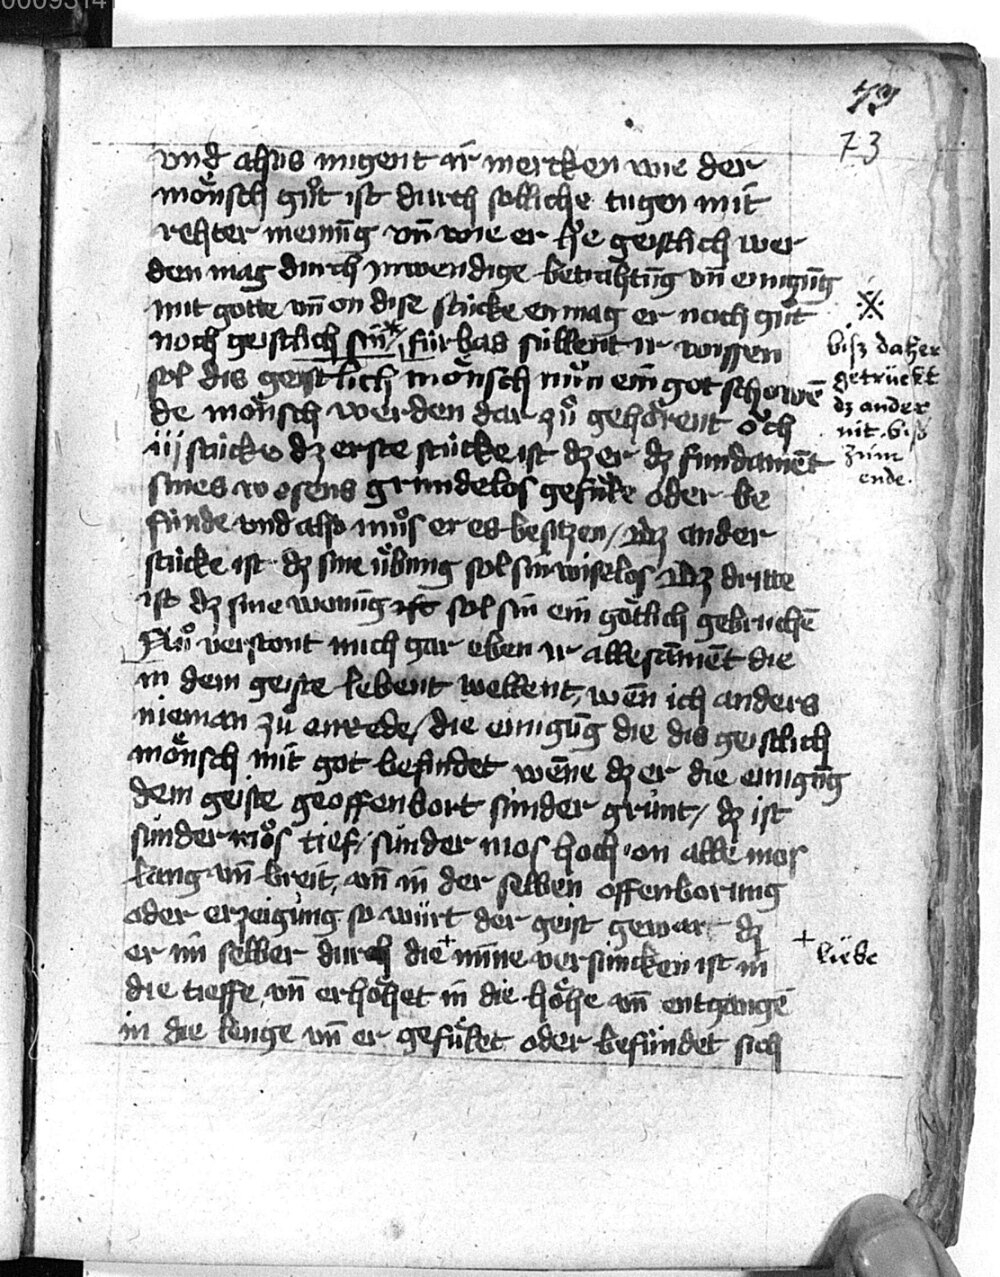 73
73
vnd alsus múgent ir mercken wie der
mönsch gůt ist durch solliche tugen mit
rehter meinūg vn̄ wie er hie geistlich wer
den mag durch jnwendige betrahtūg vn̄ einigūg
mit gotte vn̄ on dise stúcke en mag er noch gůt
noch geistlich sin* fúrbas súllent ir wissen
sol dis geistlich mönsch nůn ein got schowē
de mönsch werden dar zů gehörent öch
iij stúcke dz erste stúcke ist dz er dz fundamēt
sines wesens grundelos gefúle oder be
fúnde vnd also můs er es besitzen / dz ander
stúcke ist dz sine übung sol sin wiselos dz dritte
ist dz sine wonūg sol sin ein götlich gebruchē
Nů verstont mich gar eben ir allesāmēt die
in dem geiste lebent wellent, wēn ich anders
nieman zů en rede / die einigūg die dis geistlich
mönsch mit got befindet wēne dz er die einigūg
dem geiste geoffenbort sunder grunt / dz ist
sunder mos tief / sunder mos hoch on alle mos
lang vn̄ breit, vn̄ in der selben offenborung
oder erzeigung so würt der geist gewar dz
er im selber durch die + mīne versuncken ist in
die tieffe vn̄ erhöhet in die höhe vn̄ entgangē
in die lenge vn̄ er gefúlet oder befúndet sich
※
bisz daher
getrückt
dz ander
nit bisz
zum
ende.
+ liebe